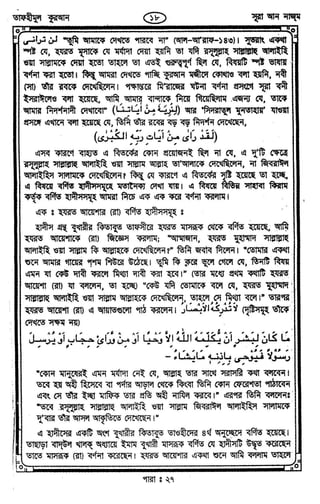 তাফহীমুল কুরআন
১৮
সূরা আন নাজ্‌ম
لَنْ تَرَانِي "তুমি আমাকে দেখতে পারবে না" (আল-আ'রাফ-১৪৩)। সুতরাং একথা
স্পষ্ট যে, হযরত মূসাকে যে মর্যাদা দেয়া হয়নি তা যদি রসূলুল্লাহ সাল্লাল্লাহু আলাইহি
ওয়া সাল্লামকে দেয়া হতো তাহলে তা এতই গুরুত্বপূর্ণ ছিল যে, বিষয়টি স্পষ্ট ভাষায়
বর্ণনা করা হতো। কিন্তু আমরা দেখতে পাচ্ছি কুরআন মজীদে কোথাও বলা হয়নি, নবী
(সা) তাঁর রবকে দেখেছিলেন। পক্ষান্তরে মি'রাজের ঘটনা বর্ণনা প্রসংগে সূরা বনী
ইসরাঈলেও বলা হয়েছে, আমি আমার বান্দাকে নিয়ে গিয়েছিলাম এজন্য যে, তাকে
আমার নিদর্শনাদী দেখাবো" (لِنُرِيَهُ مِنْ اٰيَاتِنَا) আর "সিদরাতুল মুনতাহায়" যাওয়া
প্রসংগে এখানে বলা হয়েছে যে, তিনি তাঁর রবের বড় বড় নিদর্শন দেখেছেন,
(لَقَدْ رَاٰى مِنْ اٰيَاتِ رَبِّهِ الْكُبْرٰى)
এসব কারণে বাহ্যত এ বিতর্কের কোন প্রয়োজনই ছিল না যে, এ দু'টি ক্ষেত্রে
রসূলুল্লাহ সাল্লাল্লাহু আলাইহি ওয়া সাল্লাম আল্লাহ তা'আলাকে দেখেছিলেন, না জিবরাঈল
আলাইহিস সালামকে দেখেছিলেন? কিন্তু যে কারণে এ বিতর্কের সৃষ্টি হয়েছে তা হচ্ছে,
এ বিষয়ে বর্ণিত হাদীসসমূহে মতানৈক্য দেখা যায়। এ বিষয়ে বিভিন্ন সাহাবা কিরাম
কর্তৃক বর্ণিত হাদীসসমূহ আমরা নিচে এক এক করে বর্ণনা করলাম।
এক : হযরত আয়েশার (রা) বর্ণিত হাদীসসমূহ :
হাদীস গ্রন্থ বুখারীর কিতাবুত তাফসীরে হযরত মাসরূক থেকে বর্ণিত হয়েছে, আমি
হযরত আয়েশাকে (রা) জিজ্ঞেস করলাম; "আম্মাজান, হযরত মুহাম্মাদ সাল্লাল্লাহু
আলাইহি ওয়া সাল্লাম কি আল্লাহকে দেখেছিলেন?" তিনি জবাব দিলেন। "তোমার একথা
শুনে আমার গায়ের পশম শিউরে উঠেছে। তুমি কি করে ভুলে গেলে যে, তিনটি বিষয়
এমন যা কেউ দাবী করলে মিথ্যা দাবী করা হবে।" (তার মধ্যে প্রথম কথাটি হযরত
আয়েশা (রা) যা বললেন, তা হচ্ছে) "কেউ যদি তোমাকে বলে যে, হযরত মুহাম্মাদ
সাল্লাল্লাহু আলাইহি ওয়া সাল্লাম আল্লাহকে দেখেছিলেন, তাহলে সে মিথ্যা বলে।" তারপর
হযরত আয়েশা (রা) এ আয়াতগুলো পাঠ করলেন। لَا تُدْرِكُهُ الْاَبْصَارُ (দৃষ্টিসমূহ তাঁকে
দেখতে সক্ষম নয়)
مَا كَانَ لِبَشَرٍ اَنْ يُّكَلِّمَهُ اللّٰهُ اِلَّا وَحْيًا اَوْ مِنْ وَّرَاىِٔ حِجَابٍ اَوْ يُرْسِلَ
رَسُوْلًا فَيُوْحِىَ بِاِذْنِهٖ مَا يَشَاءُ -
"কোন মানুষেরই এমন মর্যাদা নেই যে, আল্লাহ তার সাথে সরাসরি কথা বলবেন।
তবে হয় অহী হিসেবে বা পর্দার আড়াল থেকে কিংবা তিনি কোন ফেরেশতা পাঠাবেন
এবং সে তাঁর ইচ্ছা মাফিক তার প্রতি অহী নাযিল করবে।" এরপর তিনি বললেনঃ
"তবে রসূলুল্লাহ সাল্লাল্লাহু আলাইহি ওয়া সাল্লাম জিবরাঈল আলাইহিস সালামকে
দু'বার তাঁর আসল আকৃতিতে দেখেছেন।"
এ হাদীসের একটি অংশ বুখারীর কিতাবুত তাওহীদের ৪র্থ অনুচ্ছেদে বর্ণিত হয়েছে।
তাছাড়া বাদয়ুল খালক অধ্যায়ে ইমাম বুখারী মাসরূক বর্ণিত যে হাদীসটি উদ্ধৃত করেছেন
তাতে মাসরূক (রা) বর্ণনা করেছেন। হযরত আয়েশার একথা শুনে আমি বললাম তাহলে
পারা : ২৭